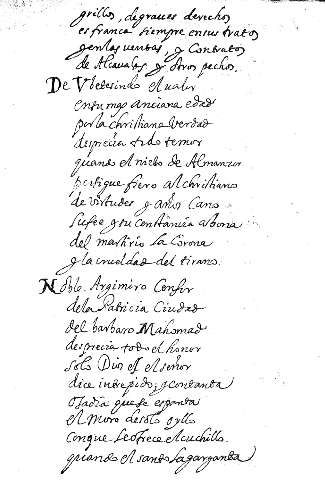 grillos, de graues derechos
es franca siempre en sus tratos
gen las uentas, y Contratos
de Alcaualas y otros pechos.
De Vbetesindo el ualor
en su mas anciana edad
por la christiana Verdad
desprecia todo temor
quando el nieto de Almanzor
persigue fiero al christiano
de virtudes y años Cano
su fee y su constancia abona
del martirio la Corona
y la crueldad del tirano.
Noble Argimiro Confesor
de la Patricia Ciudad
del barbaro Mahomad
desprecia todo el honor
solo Dios es el señor
dice intrepido, y contanta
osadia que se espanta
el Moro de solo oyllo
Con que le ofrece el cuchillo
quando el santo la garganta